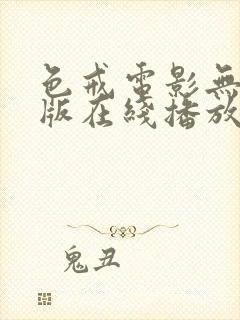 色戒電影無
版在綫播放
鬼丑